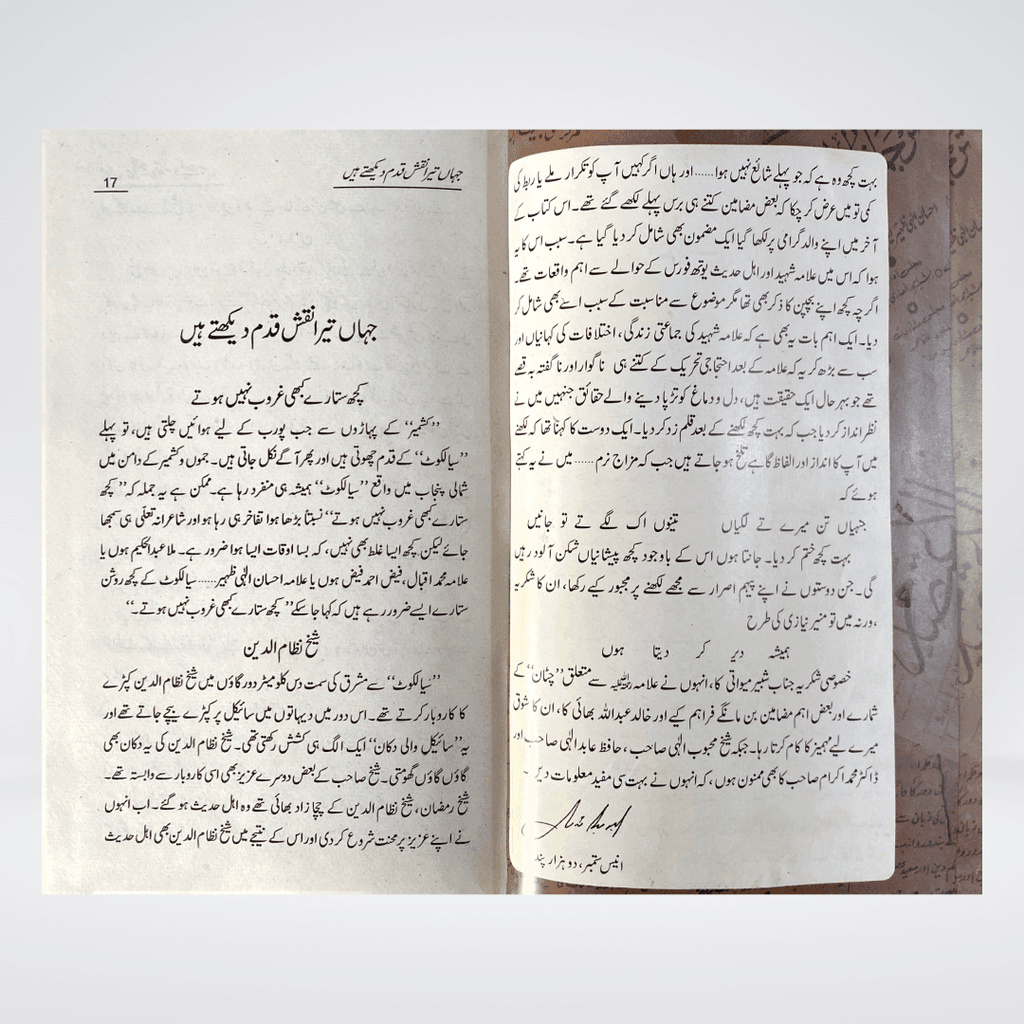 بہت کچھ وہ ہے کہ جو پہلے شائع نہیں ہوا...... اور ہاں اگر کہیں آپ کو تکرار ملے یا ربط کی
کمی تو میں عرض کر چکا کہ بعض مضامین کتنے ہی برس پہلے لکھے گئے تھے۔ اس کتاب کے
آخر میں اپنے والد گرامی پر لکھا گیا ایک مضمون بھی شامل کر دیا گیا ہے۔ سبب اس کا یہ
ہوا کہ اس میں علامہ شہید اور اہل حدیث یوتھ فورس کے حوالے سے اہم واقعات تھے۔
اگرچہ کچھ اپنے بچپن کا ذکر بھی تھا مگر موضوع سے مناسبت کے سبب اسے بھی شامل کر
دیا۔ ایک اہم بات یہ بھی ہے کہ علامہ شہید کی جماعتی زندگی، اختلافات کی کہانیاں اور
سب سے بڑھ کر یہ کہ علامہ کے بعد احتجاجی تحریک کے کتنے ہی ناگوار اور ناگفتہ بہ قصے
تھے جو بہر حال ایک حقیقت ہیں، دل و دماغ کو تڑپا دینے والے حقائق جنہیں میں نے
نظر انداز کر دیا جب کہ بہت کچھ لکھنے کے بعد قلم زد کر دیا۔ ایک دوست کا کہنا تھا کہ لکھنے
میں آپ کا انداز اور الفاظ گاہے تلخ ہو جاتے ہیں جب کہ مزاج نرم...... میں نے یہ کہتے
ہوئے کہ
جنہاں تن میرے تے لگیاں تینوں اک لگے تے تو جانیں
بہت کچھ ختم کر دیا۔ جانتا ہوں اس کے باوجود کچھ پیشانیاں شکن آلود رہیں
گی۔ جن دوستوں نے اپنے پیہم اصرار سے مجھے لکھنے پر مجبور کیے رکھا، ان کا شکریہ
،ورنہ میں تو منیر نیازی کی طرح
ہمیشہ دیر کر دیتا ہوں
خصوصی شکریہ جناب شبیر میواتی کا، انہوں نے علامہ رحمہ اللہ سے متعلق ”چٹان“ کے
شمارے اور بعض اہم مضامین بن مانگے فراہم کیے اور خالد عبداللہ بھائی کا، ان کا شوق
میرے لیے مہمیز کا کام کرتا رہا۔ جبکہ شیخ محبوب الٰہی صاحب، حافظ عابد الٰہی صاحب اور
ڈاکٹر محمد اکرام صاحب کا بھی ممنون ہوں، کہ انہوں نے بہت سی مفید معلومات دیں۔
انیس ستمبر، دو ہزار پند
جہاں تیرا نقش قدم دیکھتے ہیں
17
جہاں تیرا نقش قدم دیکھتے ہیں
کچھ ستارے کبھی غروب نہیں ہوتے
”کشمیر“ کے پہاڑوں سے جب پورب کے لیے ہوائیں چلتی ہیں، تو پہلے
”سیالکوٹ“ کے قدم چھوتی ہیں اور پھر آگے نکل جاتی ہیں۔ جموں و کشمیر کے دامن میں
شمالی پنجاب میں واقع ”سیالکوٹ“ ہمیشہ ہی منفرد رہا ہے۔ ممکن ہے یہ جملہ کہ ”کچھ
ستارے کبھی غروب نہیں ہوتے“ نسبتاً بڑھا ہوا تفاخر ہی رہا ہو اور شاعرانہ تعلّی ہی سمجھا
جائے لیکن کچھ ایسا غلط بھی نہیں، کہ بسا اوقات ایسا ہوا ضرور ہے۔ ملا عبدالحکیم ہوں یا
علامہ محمد اقبال، فیض احمد فیض ہوں یا علامہ احسان الٰہی ظہیر...... سیالکوٹ کے کچھ روشن
ستارے ایسے ضرور رہے ہیں کہ کہا جا سکے ”کچھ ستارے کبھی غروب نہیں ہوتے۔“
شیخ نظام الدین
”سیالکوٹ“ سے مشرق کی سمت دس کلو میٹر دور گاؤں میں شیخ نظام الدین کپڑے
کا کاروبار کرتے تھے۔ اس دور میں دیہاتوں میں سائیکل پر کپڑے بیچے جاتے تھے اور
یہ ”سائیکل والی دکان“ ایک الگ ہی کشش رکھتی تھی۔ شیخ نظام الدین کی یہ دکان بھی
گاؤں گاؤں گھومتی۔ شیخ صاحب کے بعض دوسرے عزیز بھی اسی کاروبار سے وابستہ تھے۔
شیخ رمضان، شیخ نظام الدین کے چچا زاد بھائی تھے وہ اہل حدیث ہو گئے۔ اب انہوں
نے اپنے عزیز پر محنت شروع کر دی اور اس کے نتیجے میں شیخ نظام الدین بھی اہل حدیث